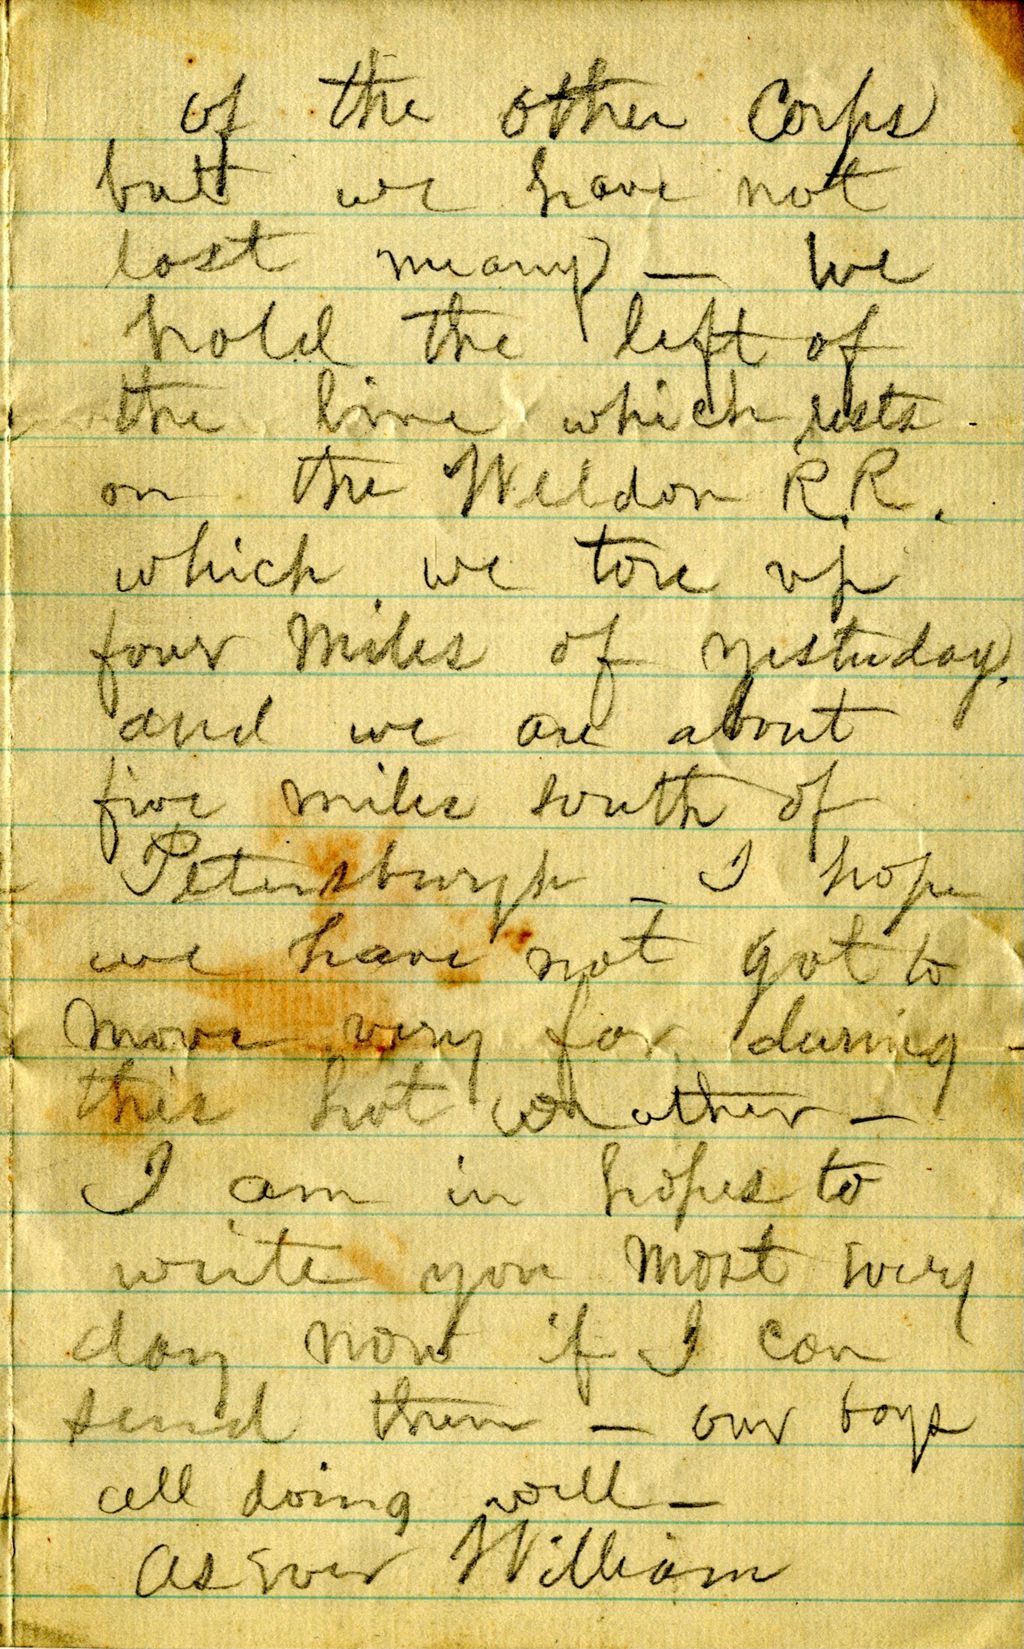 of the other Corps
but we have not
lost meany — We
hold the left of
the line which rests
on the Weldon R.R.
which we tore up
four Miles of yesterday.
and we are about
five miles south of
Petersburgh — I hope
we have not got to
Move very far during
this hot weather —
I am in hopes to
write you Most Every
day now if I can
send them — our boys
all doing well —
As Ever William